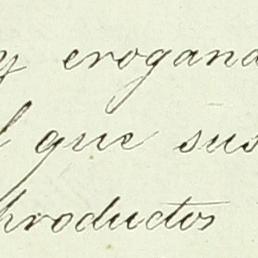 y erogand
l que sus
productos